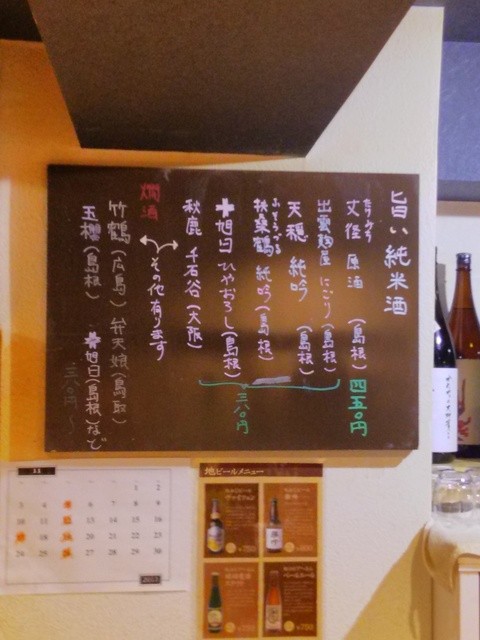 旨い純米酒
たけみち
丈径 原酒 (島根) 四五〇円
出雲麹屋 にごり (島根)
天穏 純吟 (島根)
ふそうづる
扶桑鶴 純吟 (島根)
十旭日 ひやおろし (島根)
秋鹿 千石谷 (大阪)
三八〇円
その他有ります
燗酒
竹鶴 (広島) 弁天娘 (鳥取)
玉櫻 (島根) 十旭日 (島根) など
三八〇円〜
11
1 2
3 4 5 6 7 8 9
10 11 12 13 14 15 16
17 18 19 20 21 22 23
24 25 26 27 28 29 30
2013
地ビールメニュー
ヴァイツェン
¥750
¥800
ペールエール
¥750